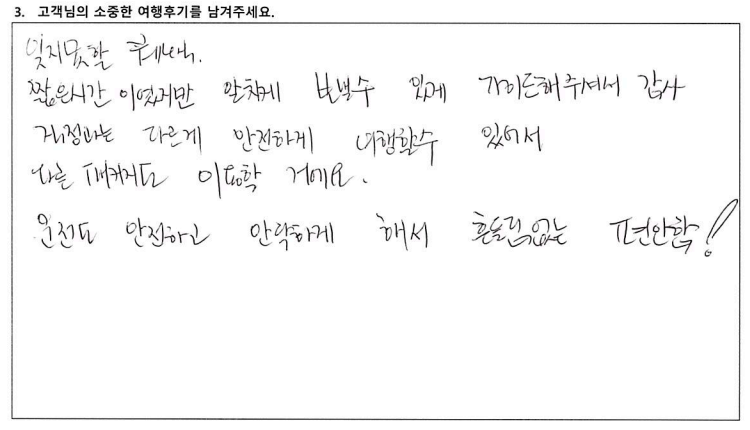 3. 고객님의 소중한 여행후기를 남겨주세요.
잊지못할 푸꾸옥.
짧은시간 이였지만 알차게 보낼수 있게 가이드해주셔서 감사
걱정과는 다르게 안전하게 여행할수 있어서
다른 패키지도 이용할 거에요.
운전도 안전하고 안락하게 해서 흔들림없는 편안함!